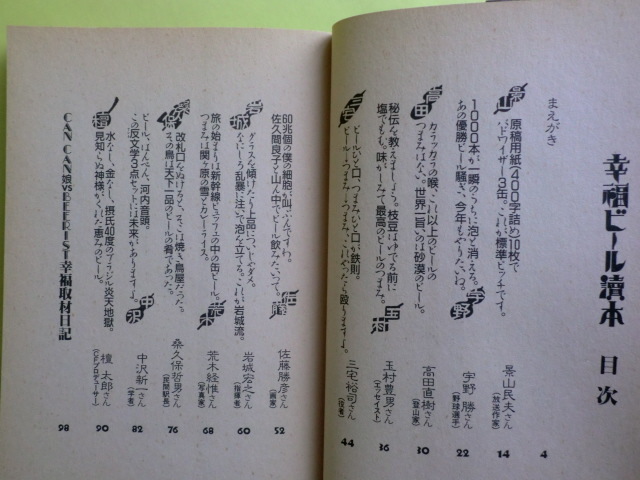 幸福ビール讀本 目次
まえがき 4
景山
原稿用紙(400字詰め)10枚で
バドワイザー3缶。これが標準ピッチです。
景山民夫さん
(放送作家)
14
1000本が一瞬のうちに泡と消える。
あの優勝ビール騒ぎ、今年もやりたいね。
宇野
宇野 勝さん
(野球選手)
22
高田
カラッカラの喉、これ以上のビールの
つまみはない。世界一旨いのは砂漠のビール。
高田直樹さん
(登山家)
30
秘伝を教えましょう。枝豆はゆでる前に
塩でもむ。味がしみて最高のビールのつまみ。
玉村
玉村豊男さん
(エッセイスト)
36
三宅
ビールひと口、つまみひと口が鉄則。
三宅裕司さん
(役者)
44
60兆個の僕の細胞が叫ぶんですわ。
佐久間良子と山ん中でビール飲みたいって。
佐藤
佐藤勝彦さん
(画家)
52
岩城
グラスを傾けたり上品につぐいではダメ。
なにしろ乱暴に注いで泡を立てる。これが岩城流。
岩城宏之さん
(指揮者)
60
旅の始まりは新幹線ビュッフェの中の缶ビール。
つまみは関ヶ原の雪とカレーライス。
荒木
荒木経惟さん
(写真家)
68
桑久保
改札口をぬけると、そこは焼き鳥屋だった。
あの鳥は天下一品のビールの肴であった。
桑久保哲男さん
(民間駅長)
76
ビール、ばんざい、河内音頭。
この反文学3点セットには未来がありますよ。
中沢
中沢新一さん
(学者)
82
檀
水なし、金なし、摂氏40度のブラジル炎天地獄。
見知らぬ神様がくれた恵みのビール。
檀 太郎さん
(CFプロデューサー)
90
CAN CAN娘vsBEERIST幸福取材日記 98